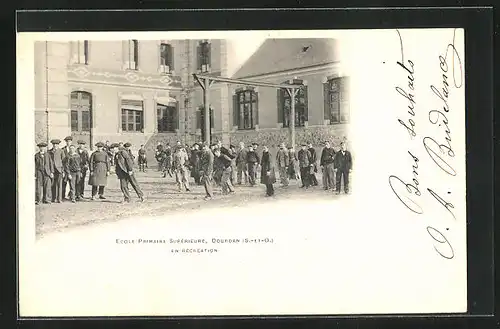 ECOLE PRIMAIRE SUPÉRIEURE, DOURDAN (S.-ET-O.)
EN RÉCRÉATION
Bons souhaits